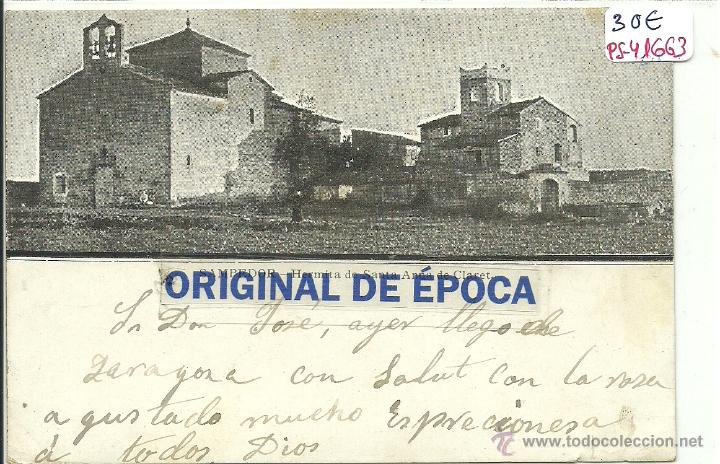 30€
PS-41663
SAMPEDOR.- Hermita de Santa Anna de Claret.
ORIGINAL DE ÉPOCA
Sr Don José, ayer llego de
Zaragoza con Salut con la
a gustado mucho Espreciones a
á todos Dios
www.todocoleccion.net